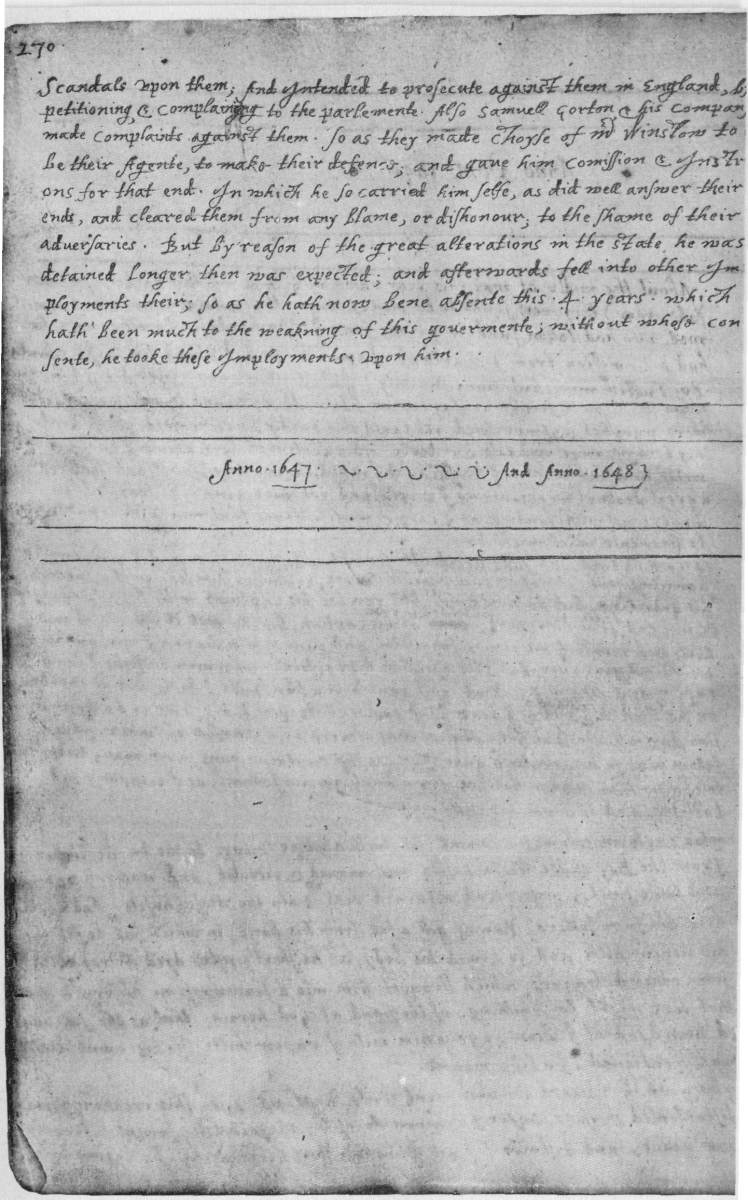 270
Scandals upon them; And Intended to prosecute against them in England, by
petitioning, & Complaining to the parlemente. Also Samuell Gorton & his Company
made Complaints against them. so as they made Choyse of mr Winslow to
be their Agente, to make their defence; and gave him Comission & Instr
ons for that end. In which he so carried him selfe, as did well answer their
ends, and cleared them from any blame, or dishonour; to the shame of their
adversaries. But by reason of the great alterations in the state, he was
detained longer then was expected; and afterwards fell into other Im
ployments their; so as he hath now bene absente this .4. years. which
hath been much to the weakning of this govermente; without whose con
sente, he tooke these Imployments upon him.
Anno. 1647. And Anno. 1648}